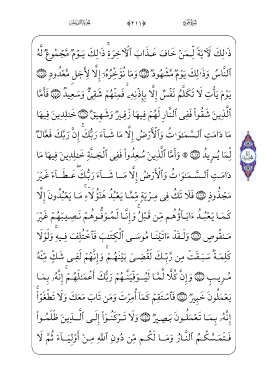 ﴿٢١١﴾
ذَٰلِكَ لَآيَةً لِّمَنْ خَافَ عَذَابَ ٱلْآخِرَةِ ذَٰلِكَ يَوْمٌ مَّجْمُوعٌ لَّهُ
ٱلنَّاسُ وَذَٰلِكَ يَوْمٌ مَّشْهُودٌ وَمَا نُؤَخِّرُهُۥٓ إِلَّا لِأَجَلٍ مَّعْدُودٍ
يَوْمَ يَأْتِ لَا تَكَلَّمُ نَفْسٌ إِلَّا بِإِذْنِهِۦ فَمِنْهُمْ شَقِىٌّ وَسَعِيدٌ فَأَمَّا
ٱلَّذِينَ شَقُوا۟ فَفِى ٱلنَّارِ لَهُمْ فِيهَا زَفِيرٌ وَشَهِيقٌ خَٰلِدِينَ فِيهَا
مَا دَامَتِ ٱلسَّمَٰوَٰتُ وَٱلْأَرْضُ إِلَّا مَا شَآءَ رَبُّكَ إِنَّ رَبَّكَ فَعَّالٌ
لِّمَا يُرِيدُ ۞ وَأَمَّا ٱلَّذِينَ سُعِدُوا۟ فَفِى ٱلْجَنَّةِ خَٰلِدِينَ فِيهَا مَا
دَامَتِ ٱلسَّمَٰوَٰتُ وَٱلْأَرْضُ إِلَّا مَا شَآءَ رَبُّكَ عَطَآءً غَيْرَ
مَجْذُوذٍ فَلَا تَكُ فِى مِرْيَةٍ مِّمَّا يَعْبُدُ هَٰٓؤُلَآءِ مَا يَعْبُدُونَ إِلَّا
كَمَا يَعْبُدُ ءَابَآؤُهُم مِّن قَبْلُ وَإِنَّا لَمُوَفُّوهُمْ نَصِيبَهُمْ غَيْرَ
مَنقُوصٍ وَلَقَدْ ءَاتَيْنَا مُوسَى ٱلْكِتَٰبَ فَٱخْتُلِفَ فِيهِ وَلَوْلَا
كَلِمَةٌ سَبَقَتْ مِن رَّبِّكَ لَقُضِىَ بَيْنَهُمْ وَإِنَّهُمْ لَفِى شَكٍّ مِّنْهُ
مُرِيبٍ وَإِنَّ كُلًّا لَّمَّا لَيُوَفِّيَنَّهُمْ رَبُّكَ أَعْمَٰلَهُمْ إِنَّهُۥ بِمَا
يَعْمَلُونَ خَبِيرٌ فَٱسْتَقِمْ كَمَآ أُمِرْتَ وَمَن تَابَ مَعَكَ وَلَا تَطْغَوْا۟
إِنَّهُۥ بِمَا تَعْمَلُونَ بَصِيرٌ وَلَا تَرْكَنُوٓا۟ إِلَى ٱلَّذِينَ ظَلَمُوا۟
فَتَمَسَّكُمُ ٱلنَّارُ وَمَا لَكُم مِّن دُونِ ٱللَّهِ مِنْ أَوْلِيَآءَ ثُمَّ لَا